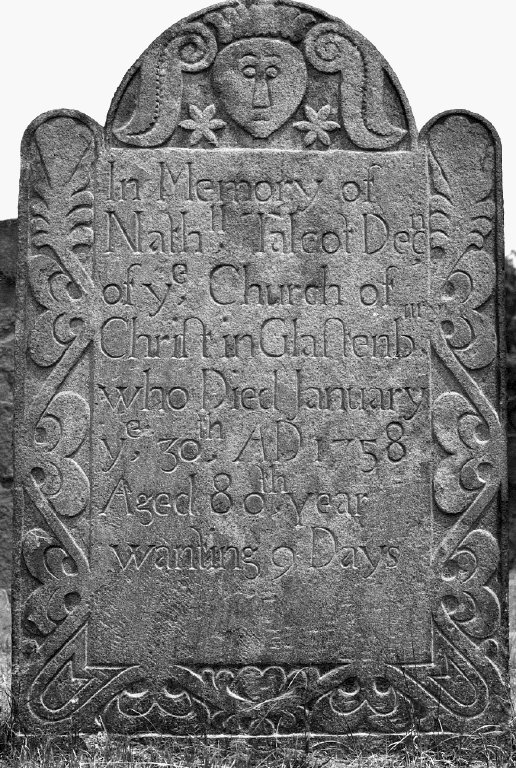 In Memory of
Nathll. Talcot Decn
of ye. Church of
Chriſt in Glaſtenb.
who Died January
ye. 30th. AD 1758
Aged 80th. year
wanting 9 Days